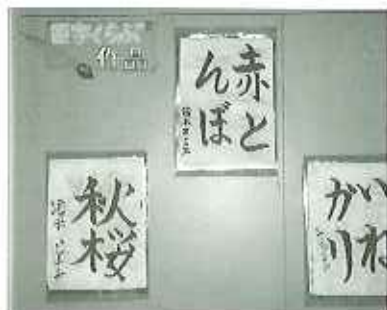 習字くらぶ
作品
赤と
んぼ
秋桜
いね
かり